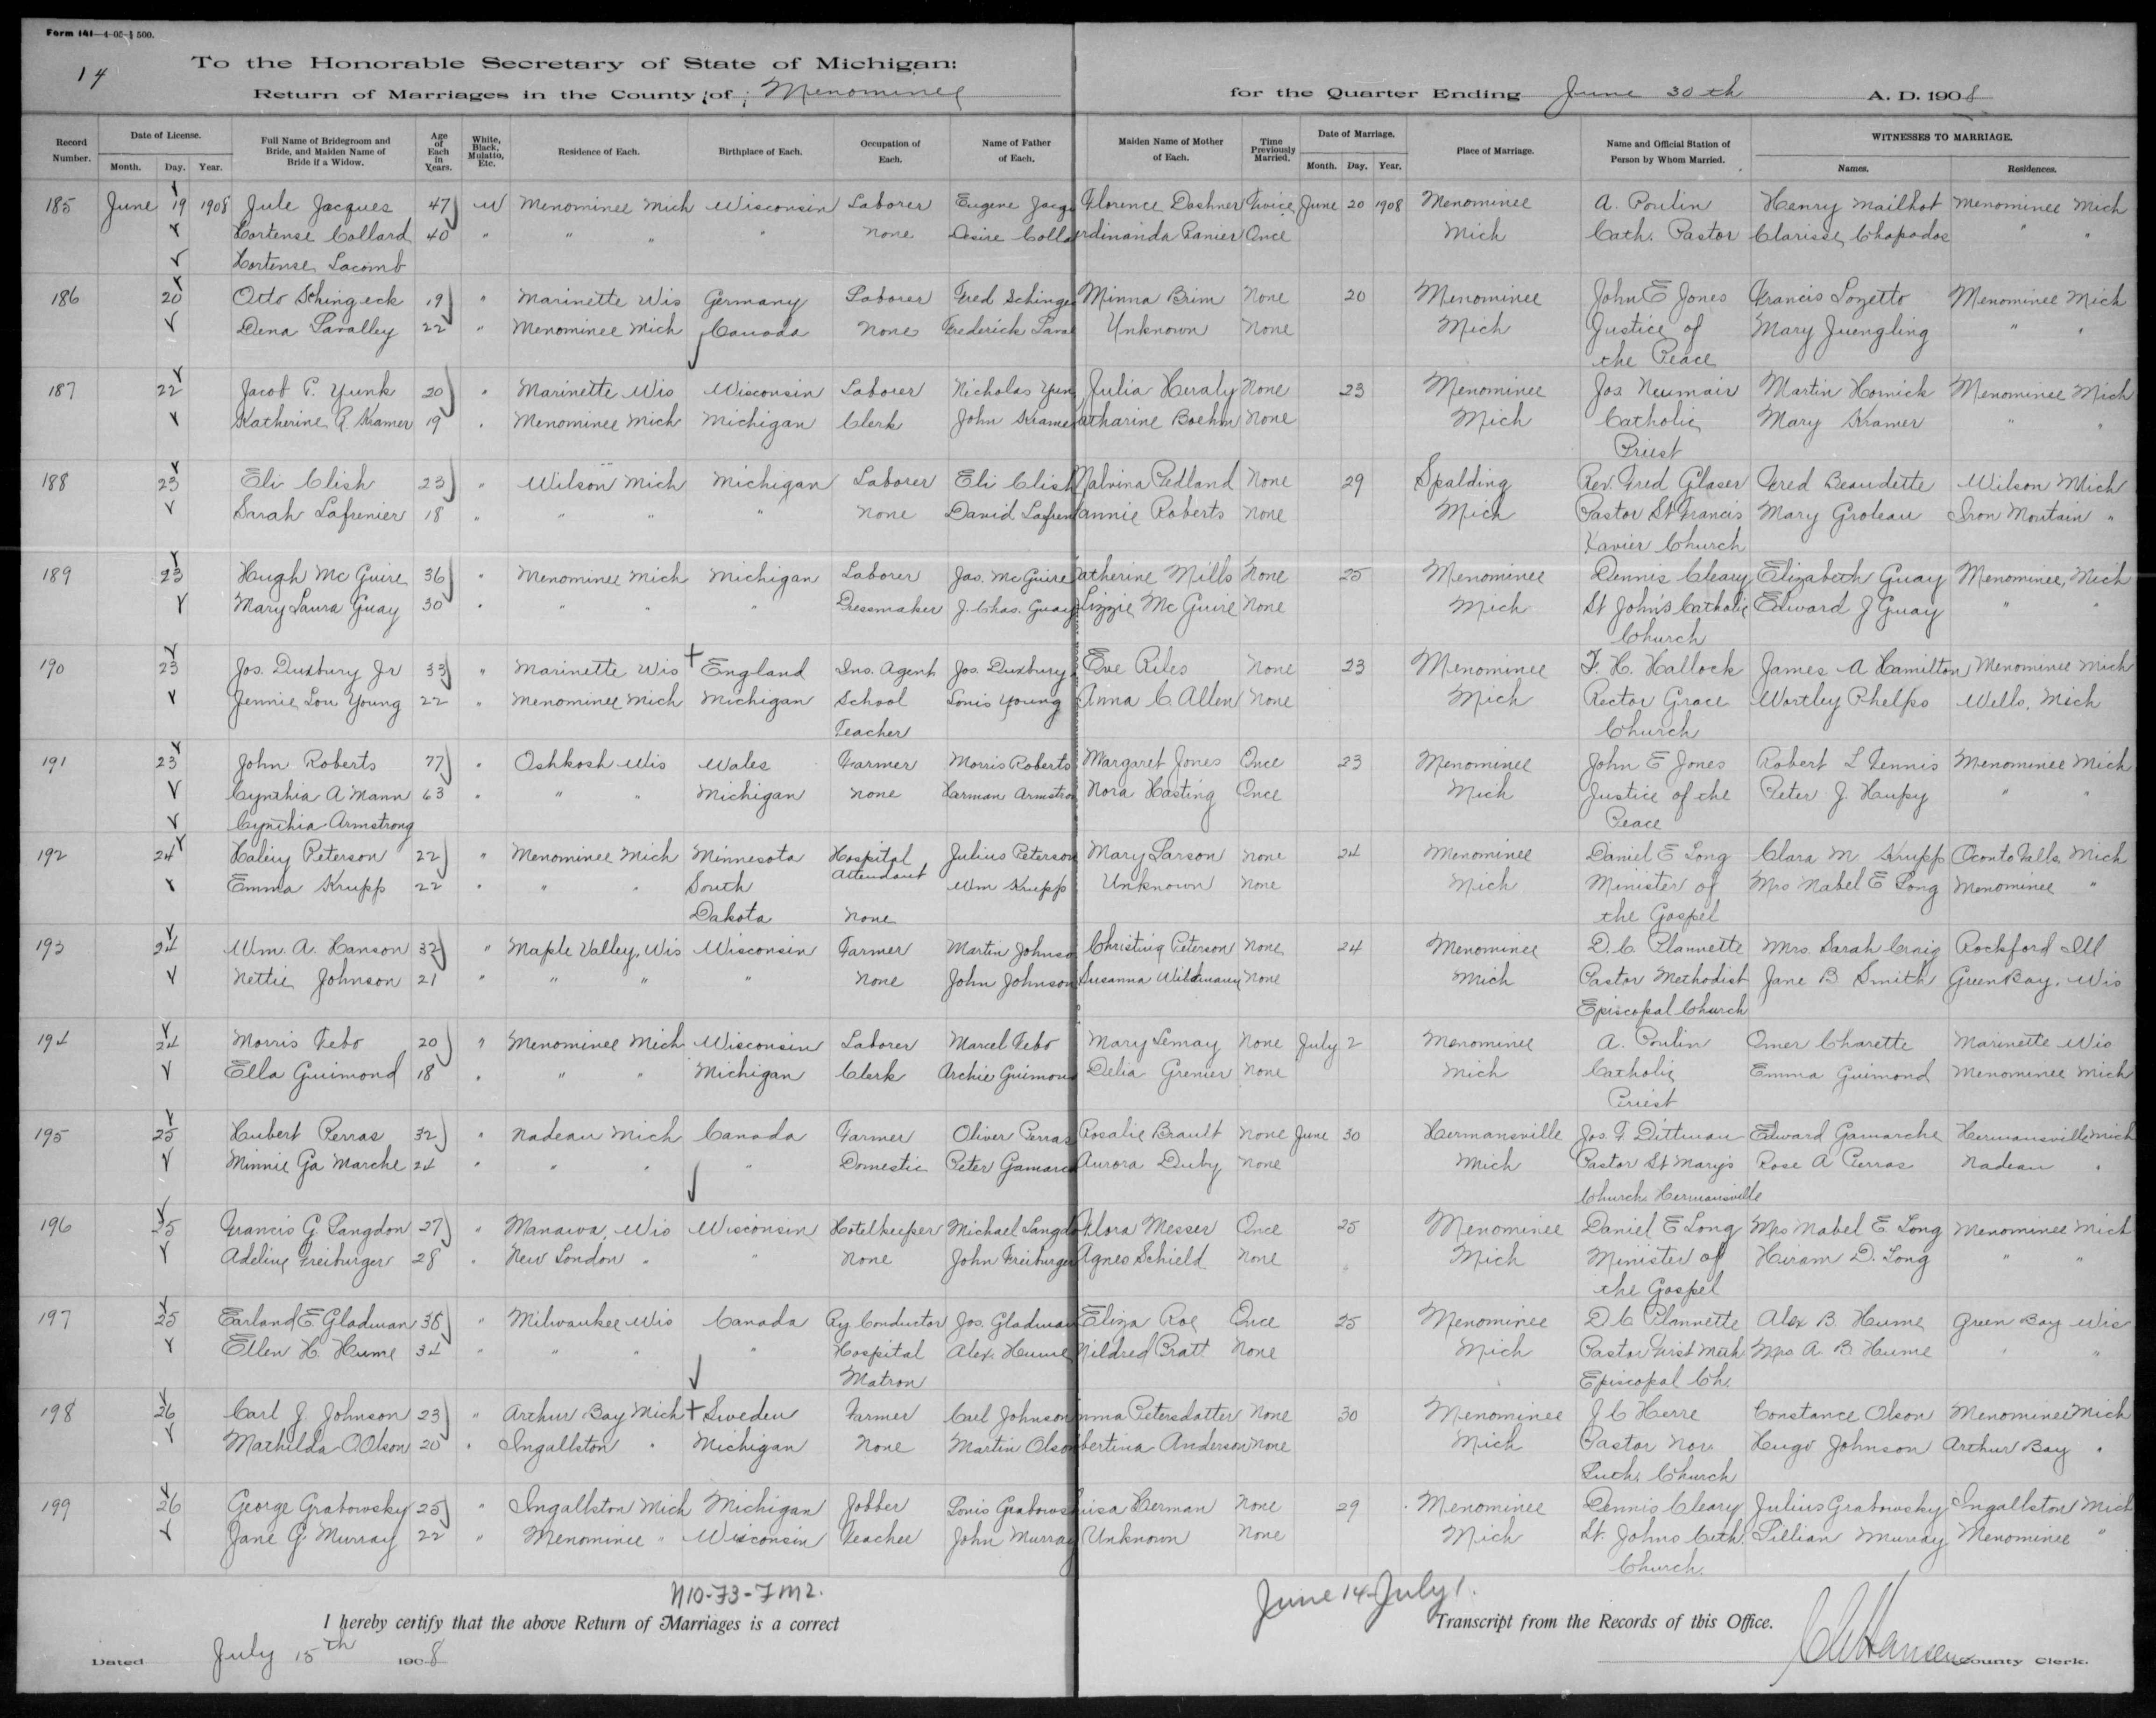 Form 141—4-05-1500.
14
To the Honorable Secretary of State of Michigan:
Return of Marriages in the County of Menominee for the Quarter Ending June 30th A. D. 1908
Record Number. Date of License. Month. Day. Year. Full Name of Bridegroom and Bride, and Maiden Name of Bride if a Widow. Age of Each in Years. White, Black, Mulatto, Etc. Residence of Each. Birthplace of Each. Occupation of Each. Name of Father of Each. Maiden Name of Mother of Each. Time Previously Married. Date of Marriage. Month. Day. Year. Place of Marriage. Name and Official Station of Person by Whom Married. WITNESSES TO MARRIAGE. Names. Residences.
185 June 19 1908 Jule Jacques 47 W Menominee Mich Wisconsin Laborer Eugene Jacq Florence Dashner Twice June 20 1908 Menominee A. Poulin Henry Mailhot Menominee Mich
Hortense Collard 40 " " " " None Desire Colla rdinanda Ranier Once Mich Cath. Pastor Clarisse Chapados " "
Hortense Lacomb
186 20 Otto Schingeck 19 " Marinette Wis Germany Laborer Fred Schinge Minna Brim None 20 Menominee John E Jones Francis Lozetto Menominee Mich
Dena Lavalley 22 " Menominee Mich Canada None Frederick Laval Unknown None Mich Justice of Mary Juengling " "
the Peace
187 22 Jacob P. Yunk 20 " Marinette Wis Wisconsin Laborer Nicholas Yun Julia Heraly None 23 Menominee Jos. Neumair Martin Hornick Menominee Mich
Katherine R. Kramer 19 " Menominee Mich Michigan Clerk John Krame atharine Boehm None Mich Catholic Mary Kramer " "
Priest
188 23 Eli Clish 23 " Wilson Mich Michigan Laborer Eli Clish Malvina Pedland None 29 Spalding Rev. Fred Glaser Fred Beaudette Wilson Mich
Sarah Lafrenier 18 " " " " None David Lafren annie Roberts None Mich Pastor St Francis Mary Groleau Iron Mountain "
Xavier Church
189 23 Hugh McGuire 36 " Menominee Mich Michigan Laborer Jas. McGuire Catherine Mills None 25 Menominee Dennis Cleary Elizabeth Guay Menominee, Mich
Mary Laura Guay 30 " " " " Dressmaker J. Chas. Guay Lizzie McGuire None Mich St John's Catholic Edward J Guay " "
Church
190 23 Jos. Duxbury Jr 33 " Marinette Wis + England Ins. Agent Jos. Duxbury Eve Riles None 23 Menominee F. H. Hallock James A Hamilton Menominee Mich
Jennie Lou Young 22 " Menominee Mich Michigan School Louis Young Anna C Allen None Mich Rector Grace Wortley Phelps Wells, Mich
Teacher Church
191 23 John Roberts 77 " Oshkosh Wis Wales Farmer Morris Roberts Margaret Jones Once 23 Menominee John E Jones Robert L Fennis Menominee Mich
Cynthia A Mann 63 " " " Michigan None Harman Armstron Nora Hasting Once Mich Justice of the Peter J. Haupy " "
Cynthia Armstrong Peace
192 24 Peterson 22 " Menominee Mich Minnesota Hospital Julius Peterson Mary Larson None 24 Menominee Daniel E Long Clara M. Krupp Oconto Falls Mich
Emma Krupp 22 " " " South Attendant Wm Krupp Unknown None Mich Minister of Mrs Mabel E Long Menominee "
Dakota None the Gospel
193 24 Wm. A. Hanson 32 " Maple Valley, Wis Wisconsin Farmer Martin Johnso Christina Peterson None 24 Menominee D. C. Plannette Mrs. Sarah Craig Rockford Ill
Nettie Johnson 21 " " " " None John Johnson Susanna Wildmann None Mich Pastor Methodist Jane B Smith Green Bay, Wis
Episcopal Church
194 24 Morris Tebo 20 " Menominee Mich Wisconsin Laborer Marcel Tebo Mary Lemay None July 2 Menominee A. Poulin Omer Charette Marinette Wis
Ella Guimond 18 " " " Michigan Clerk Archie Guimond Delia Grenier None Mich Catholic Emma Guimond Menominee Mich
Priest
195 25 Hubert Perras 32 " Nadeau Mich Canada Farmer Oliver Perras Rosalie Brault None June 30 Hermansville Jos. F. Dittman Edward Gamarche Hermansville Mich
Minnie Ga Marche 24 " " " " Domestic Peter Gamarc Aurora Duby None Mich Pastor St Mary's Rose A Perras Nadeau "
Church Hermansville
196 25 Francis G. Langdon 27 " Manawa, Wis Wisconsin Hotelkeeper Michael Langdo Flora Messer Once 25 Menominee Daniel E Long Mrs Mabel E. Long Menominee Mich
Adeline Freiburger 28 " New London " " None John Freiburger Agnes Schield None Mich Minister of Hiram D. Long " "
the Gospel
197 25 Earland E. Gladman 38 " Milwaukee Wis Canada Ry Conductor Jos. Gladman Eliza Roe Once 25 Menominee D C Plannette Alex B. Hume Green Bay Wis
Ellen H. Hume 34 " " " " Hospital Alex. Hume Mildred Pratt None Mich Pastor First Meth Mrs A. B. Hume " "
Matron Episcopal Ch.
198 26 Carl J. Johnson 23 " Arthur Bay Mich + Sweden Farmer Carl Johnson mma Petersdatter None 30 Menominee J C Herre Constance Olson Menominee Mich
Mathilda O Olson 20 " Ingallston " Michigan None Martin Olson bertina Anderson None Mich Pastor Nor. Hugo Johnson Arthur Bay "
Luth. Church
199 26 George Grabowsky 25 " Ingallston Mich Michigan Jobber Louis Grabows uisa Herman None 29 Menominee Dennis Cleary Julius Grabowsky Ingallston Mich
Jane G. Murray 22 " Menominee " Wisconsin Teacher John Murray Unknown None Mich St. Johns Cath. Lillian Murray Menominee "
Church
N10-73-7M2. June 14-July 1.
I hereby certify that the above Return of Marriages is a correct Transcript from the Records of this Office.
Dated July 15th 1908 Hansen County Clerk.